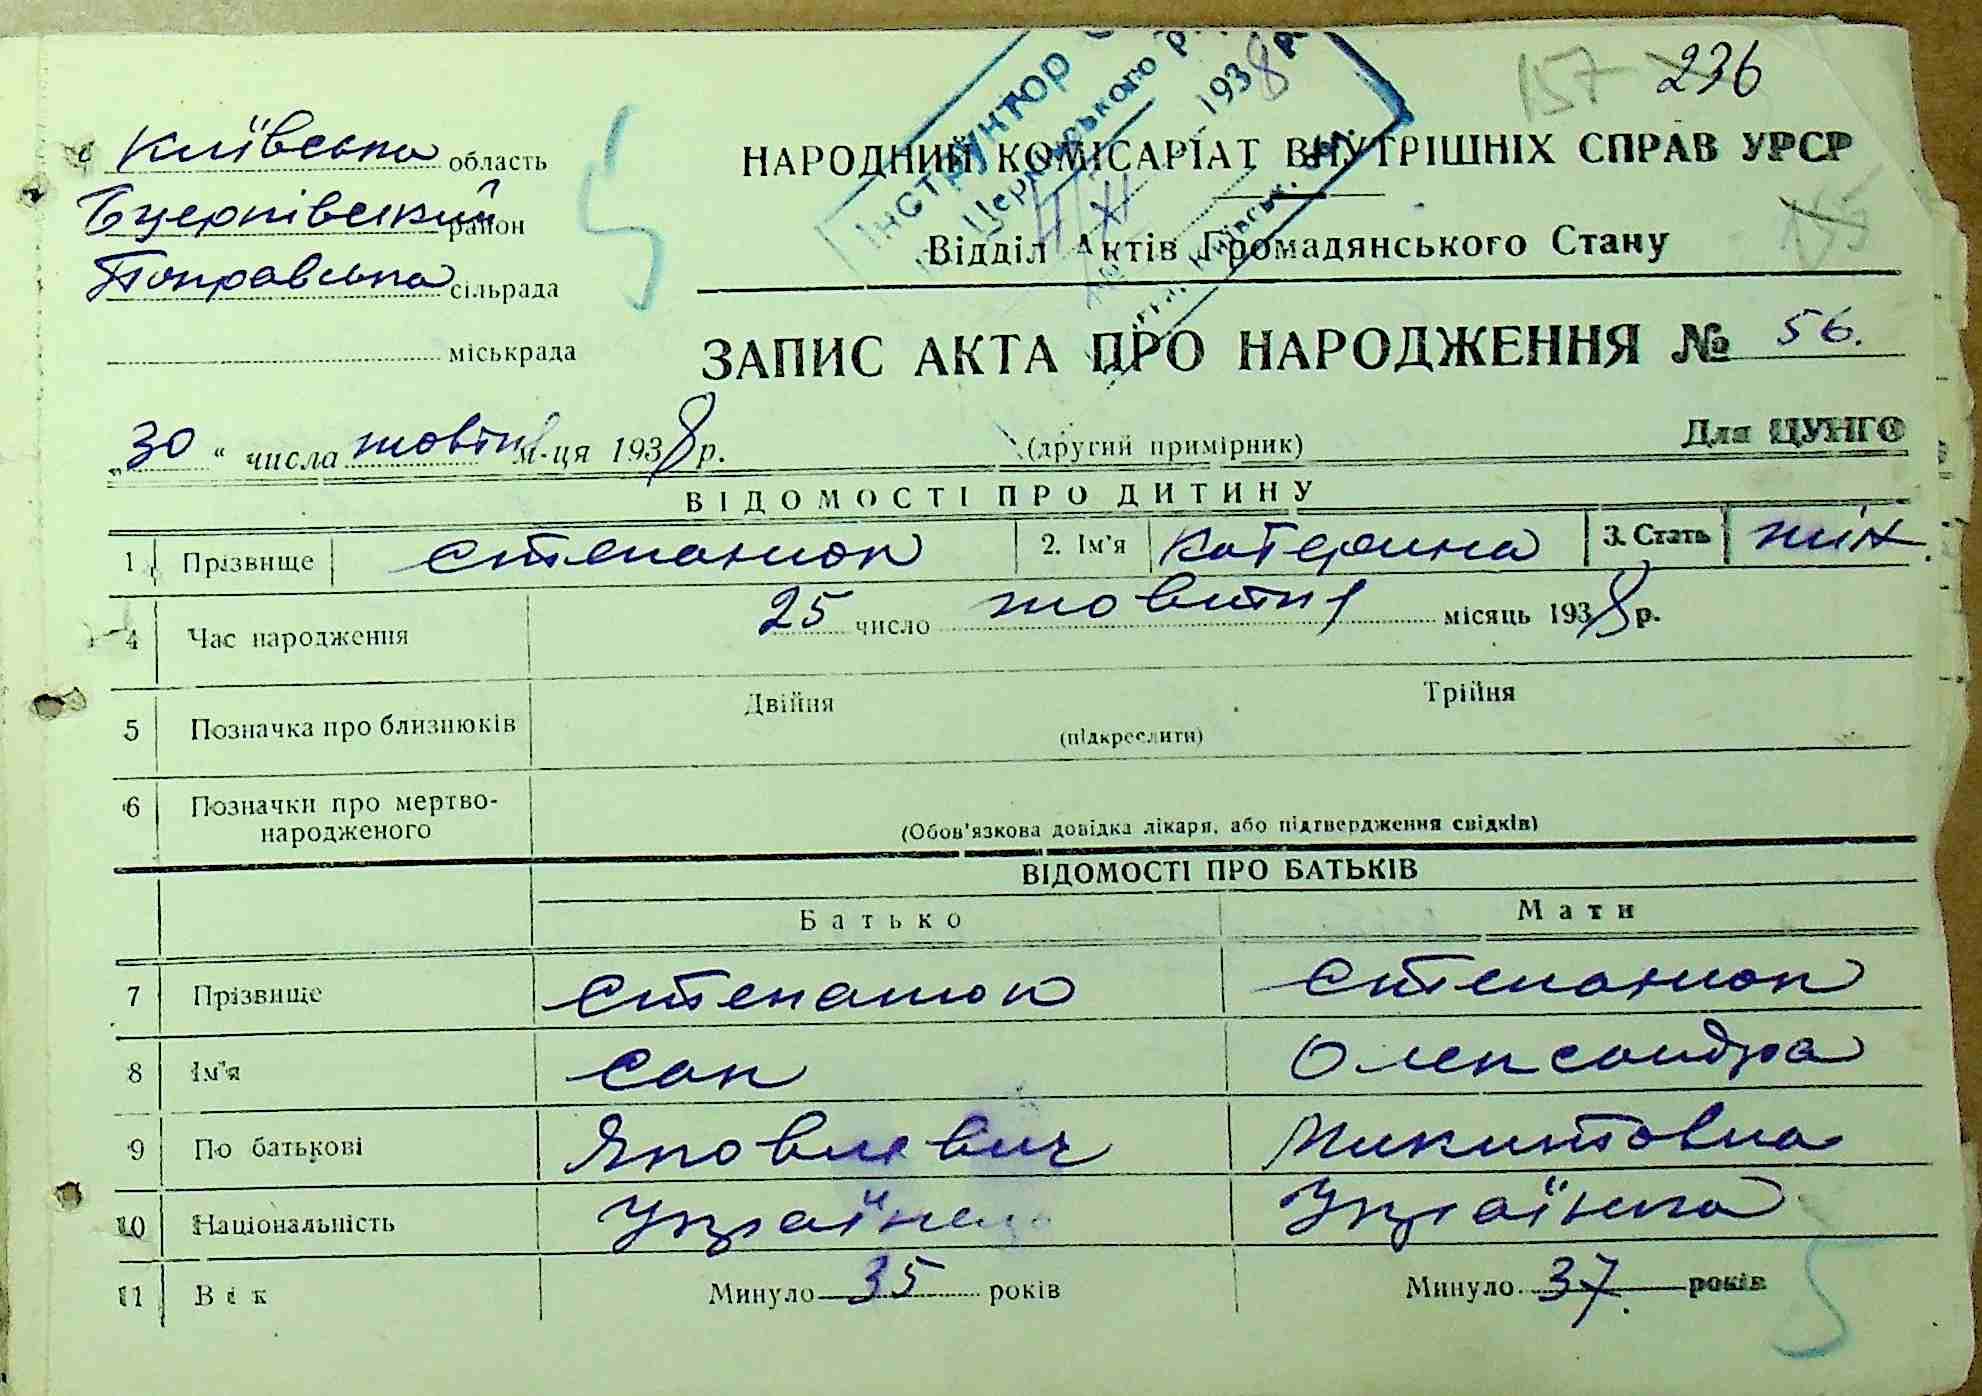 157 236
Київська область
НАРОДНИЙ КОМІСАРІАТ ВНУТРІШНІХ СПРАВ УРСР
район
Відділ Актів Громадянського Стану
сільрада
Інструктор
1938
міськрада
ЗАПИС АКТА ПРО НАРОДЖЕННЯ № 56.
„30“ числа жовтня м-ця 1938 р.
(другий примірник)
Для ЦУНГО
ВІДОМОСТІ ПРО ДИТИНУ
1 Прізвище Степанюк 2. Ім'я Катерина 3. Стать жін.
4 Час народження 25 число жовтня місяць 1938 р.
5 Позначка про близнюків Двійня Трійня
(підкреслити)
6 Позначки про мертво-
народженого (Обов'язкова довідка лікаря, або підтвердження свідків)
ВІДОМОСТІ ПРО БАТЬКІВ
Батько Мати
7 Прізвище Степанюк Степанюк
8 Ім'я Сак Олександра
9 По батькові Яковлевич Микитовна
10 Національність Українець Українка
11 Вік Минуло 35 років Минуло 37 років
5